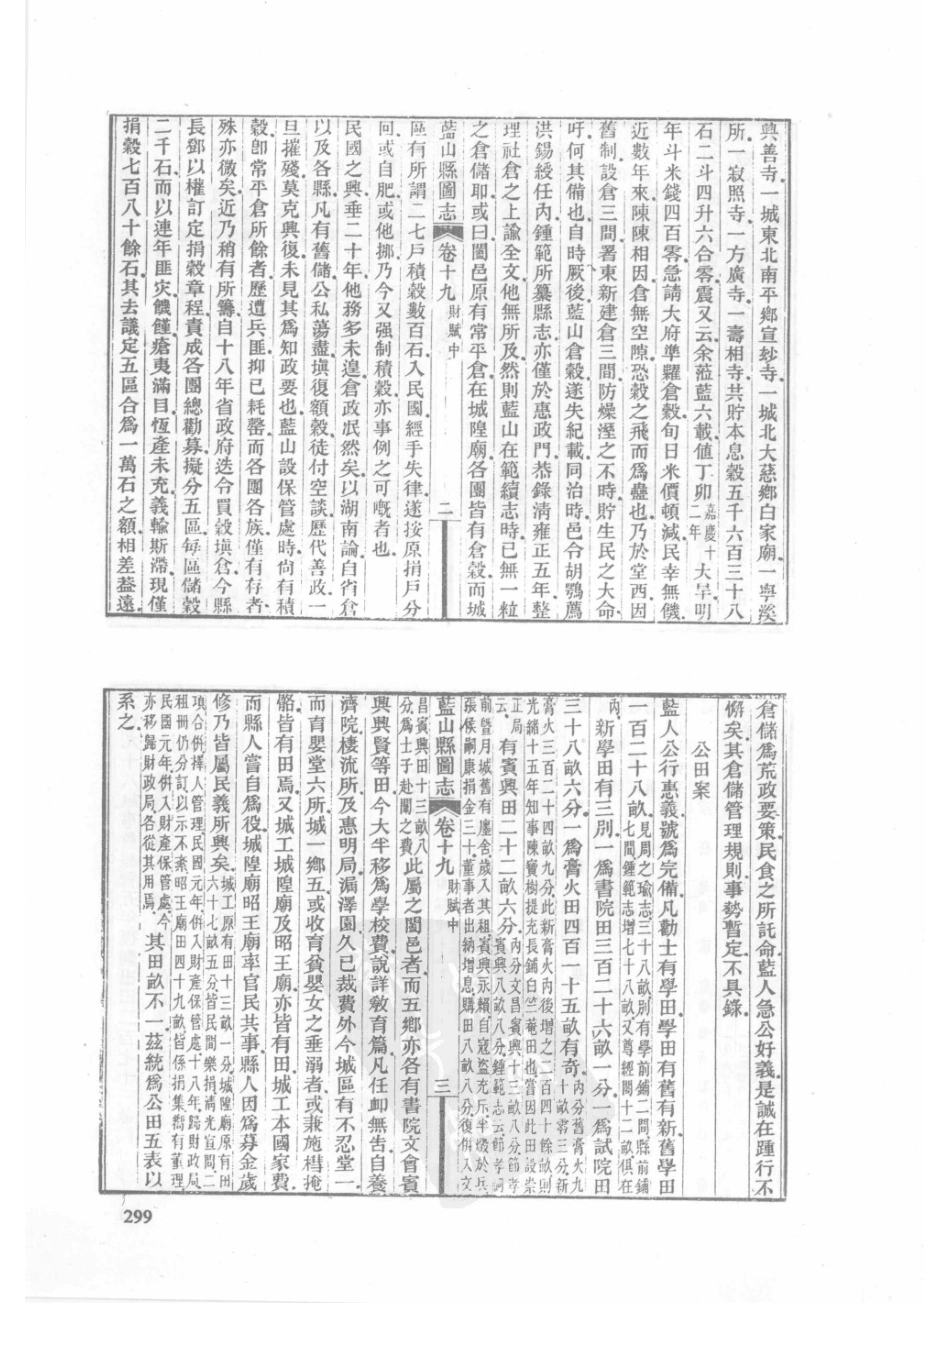 興善寺一城東北南平鄉宣紗寺一城北大慈鄉白家廟一寧溪
所一寂照寺一方廣寺一壽相寺共貯本息穀五千六百三十八
石二斗四升六合零震又云余蒞藍六載值丁卯嘉慶十二年大旱明
年斗米錢四百零急請大府準糶倉穀旬日米價頓減民幸無饑
近數年來陳陳相因倉無空隙恐穀之飛而爲蠱也乃於堂西因
舊制設倉三間署東新建倉三間防燥溼之不時貯生民之大命
吁何其備也自時厥後藍山倉穀遂失紀載同治時邑令胡鶚薦
洪錫綬任內鍾範所纂縣志亦僅於惠政門恭錄淸雍正五年整
理社倉之上諭全文他無所及然則藍山在範續志時已無一粒
之倉儲耶或曰闔邑原有常平倉在城隍廟各團皆有倉穀而城
藍山縣圖志 卷十九 財賦中 二
區有所謂二七戶積穀數百石入民國經手失律遂按原捐戶分
回或自肥或他挪乃今又强制積穀亦事例之可嘅者也
民國之興垂二十年他務多未遑倉政泯然矣以湖南論自省倉
以及各縣凡有舊儲公私蕩盡塡復額穀徒付空談歷代善政一
旦摧殘莫克興復未見其爲知政要也藍山設保管處時尙有積
穀卽常平倉所餘者歷遭兵匪抑已耗罄而各團各族僅有存者
殊亦微矣近乃稍有所籌自十八年省政府迭令買穀塡倉今縣
長鄧以權訂定捐穀章程責成各團總勸募擬分五區每區儲穀
二千石而以連年匪災饑饉瘡夷滿目恆產未充義輸斯滯現僅
捐穀七百八十餘石其去議定五區合爲一萬石之額相差益遠
倉儲爲荒政要策民食之所託命藍人急公好義是誠在踵行不
懈矣其倉儲管理規則事勢暫定不具錄
公田案
藍人公行惠義號爲完備凡勸士有學田學田有舊有新舊學田
一百二十八畝見周之瑜志三十八畝別有學前鋪二間縣前鋪七間鍾範志增七十八畝又尊經閣十二畝俱在
內新學田有三別一爲書院田三百二十六畝一分一爲試院田
三十八畝六分一爲膏火田四百一十五畝有奇內分舊膏火九十畝零三分新
膏火三百二十四畝九分此新膏火內後增之二百四十餘畝則
光緒十五年知事陳寶樹提充長鋪白竺菴田也嘗因此田設崇
正局云有賓興田二十二畝六分內分文昌賓興十三畝八分節孝祠賓興八畝八分鍾範志云
前曁月城舊有廛舍歲入其租賓興永賴自寇盜充斥半燬於兵
張侯嗣康捐金三十董事者出納增息購田八畝八分復併入文
藍山縣圖志 卷十九 財賦中 三
昌賓興田十三畝八分爲士子赴闈之費此屬之闔邑者而五鄉亦各有書院文會賓
興興賢等田今大半移爲學校費說詳敎育篇凡任卹無吿自養
濟院棲流所及惠明局漏澤園久已裁費外今城區有不忍堂一
而育嬰堂六所城一鄉五或收育貧嬰女之垂溺者或兼施槥掩
骼皆有田焉又城工城隍廟及昭王廟亦皆有田城工本國家費
而縣人嘗自爲役城隍廟昭王廟率官民共事縣人因爲募金歲
修乃皆屬民義所興矣城工原有田十三畝一分城隍廟原有田六十七畝五分皆民間樂捐淸光宣間二
項合併擇人管理民國元年併入財產保管處十八年歸財政局
租冊仍分訂以示不紊昭王廟田四十九畝皆係捐集嚮有董理
民國元年併入財產保管處今亦移歸財政局各從其用焉其田畝不一茲統爲公田五表以
系之
299